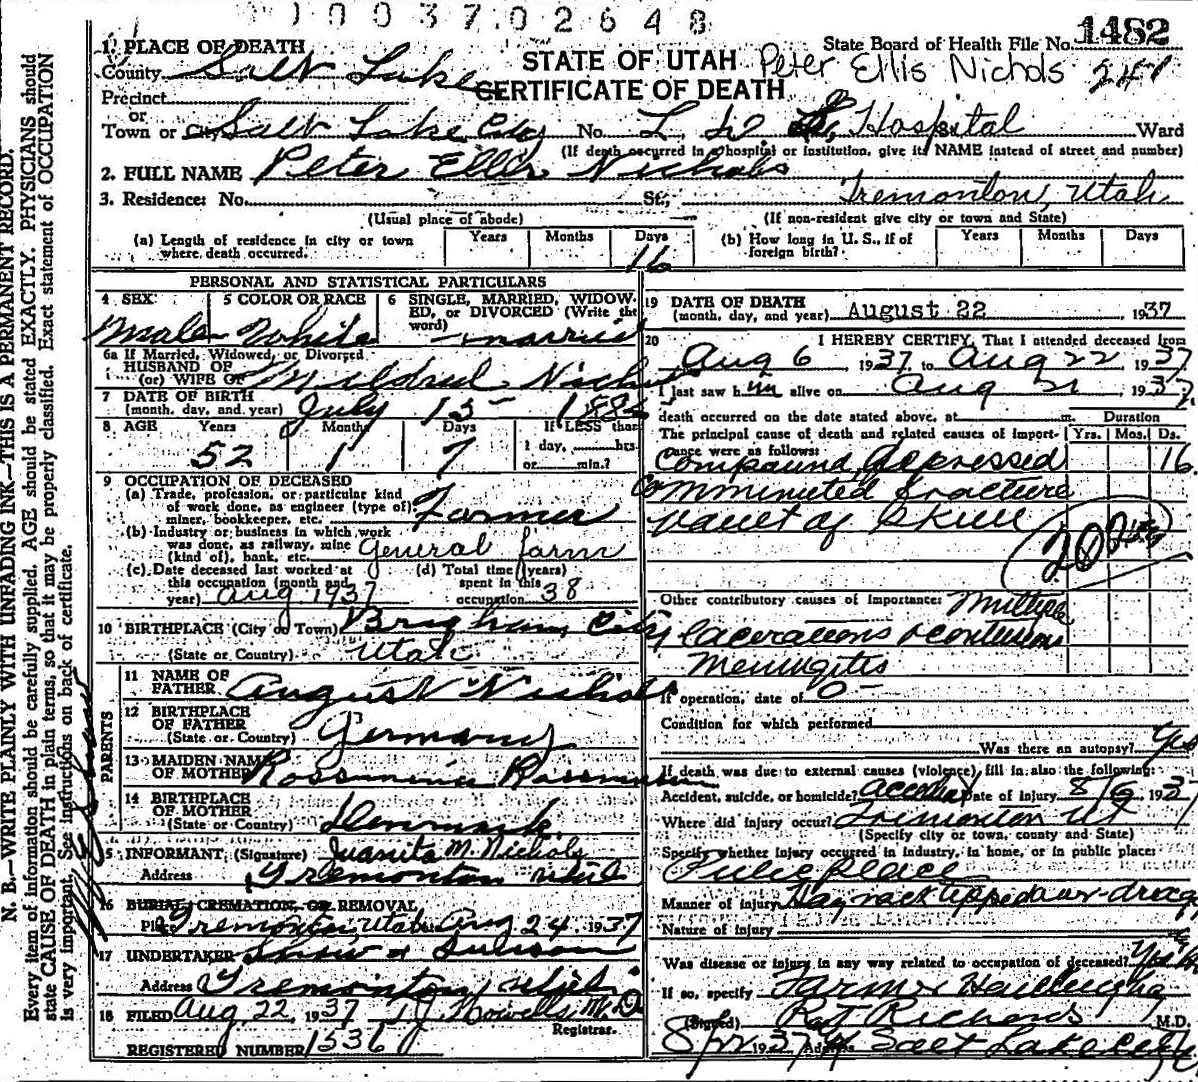 1003702648
State Board of Health File No. 1482
1. PLACE OF DEATH
STATE OF UTAH Peter Ellis Nichols 241
County Salt Lake
CERTIFICATE OF DEATH
Precinct
or
Town or City Salt Lake City No. L. D. S. Hospital Ward
(If death occurred in a hospital or institution, give its NAME instead of street and number)
2. FULL NAME Peter Ellis Nichols
3. Residence: No. St., Tremonton, Utah
(Usual place of abode) (If non-resident give city or town and State)
(a) Length of residence in city or town where death occurred. Years Months Days 16
(b) How long in U. S., if of foreign birth? Years Months Days
PERSONAL AND STATISTICAL PARTICULARS
4 SEX Male
5 COLOR OR RACE White
6 SINGLE, MARRIED, WIDOWED, or DIVORCED (Write the word) married
6a If Married, Widowed, or Divorced
HUSBAND OF
(or) WIFE OF Mildred Nichols
7 DATE OF BIRTH
(month, day, and year) July 15 1885
8 AGE Years Months Days If LESS than
52 1 7 1 day, hrs.
or min.?
9 OCCUPATION OF DECEASED
(a) Trade, profession, or particular kind
of work done, as engineer (type of)
miner, bookkeeper, etc. Farmer
(b) Industry or business in which work
was done, as railway, mine
(kind of), bank, etc. General farm
(c) Date deceased last worked at
this occupation (month and
year) Aug. 1937
(d) Total time (years)
spent in this
occupation 38
10 BIRTHPLACE (City or Town) Brigham City
(State or Country) Utah
PARENTS
11 NAME OF
FATHER August Nichols
12 BIRTHPLACE
OF FATHER
(State or Country) Germany
13 MAIDEN NAME
OF MOTHER Rossmina Rasmussen
14 BIRTHPLACE
OF MOTHER
(State or Country) Denmark
15 INFORMANT (Signature) Juanita M. Nichols
Address Tremonton Utah
16 BURIAL, CREMATION, OR REMOVAL
Place Tremonton, Utah Aug 24, 1937
17 UNDERTAKER
Address Tremonton, Utah
18 FILED Aug 22, 1937 T. J. Howells M.D.
Registrar.
REGISTERED NUMBER 1536
19 DATE OF DEATH
(month, day, and year) August 22 1937
20 I HEREBY CERTIFY, That I attended deceased from
Aug 6 1937, to Aug 22 1937
I last saw him alive on Aug 21 1937
death occurred on the date stated above, at m. Duration
The principal cause of death and related causes of importance were as follows: Yrs. Mos. Ds.
Compound, depressed 16
Comminuted fracture
vault of skull
Other contributory causes of importance: Multiple
lacerations & contusions
Meningitis
If operation, date of 0
Condition for which performed
Was there an autopsy? Yes
If death was due to external causes (violence) fill in also the following:
Accident, suicide, or homicide? accident Date of injury 8/6 1937
Where did injury occur? Tremonton Ut
(Specify city or town, county and State)
Specify whether injury occurred in industry, in home, or in public place:
Public place
Manner of injury Hay rack tipped over
Nature of injury
Was disease or injury in any way related to occupation of deceased? Yes
If so, specify Farmer Hauling hay
(Signed) Richards M.D.
1937 Address Salt Lake City
N. B.—WRITE PLAINLY WITH UNFADING INK—THIS IS A PERMANENT RECORD.
Every item of information should be carefully supplied. AGE should be stated EXACTLY. PHYSICIANS should
state CAUSE OF DEATH in plain terms, so that it may be properly classified. Exact statement of OCCUPATION
is very important. See instructions on back of certificate.